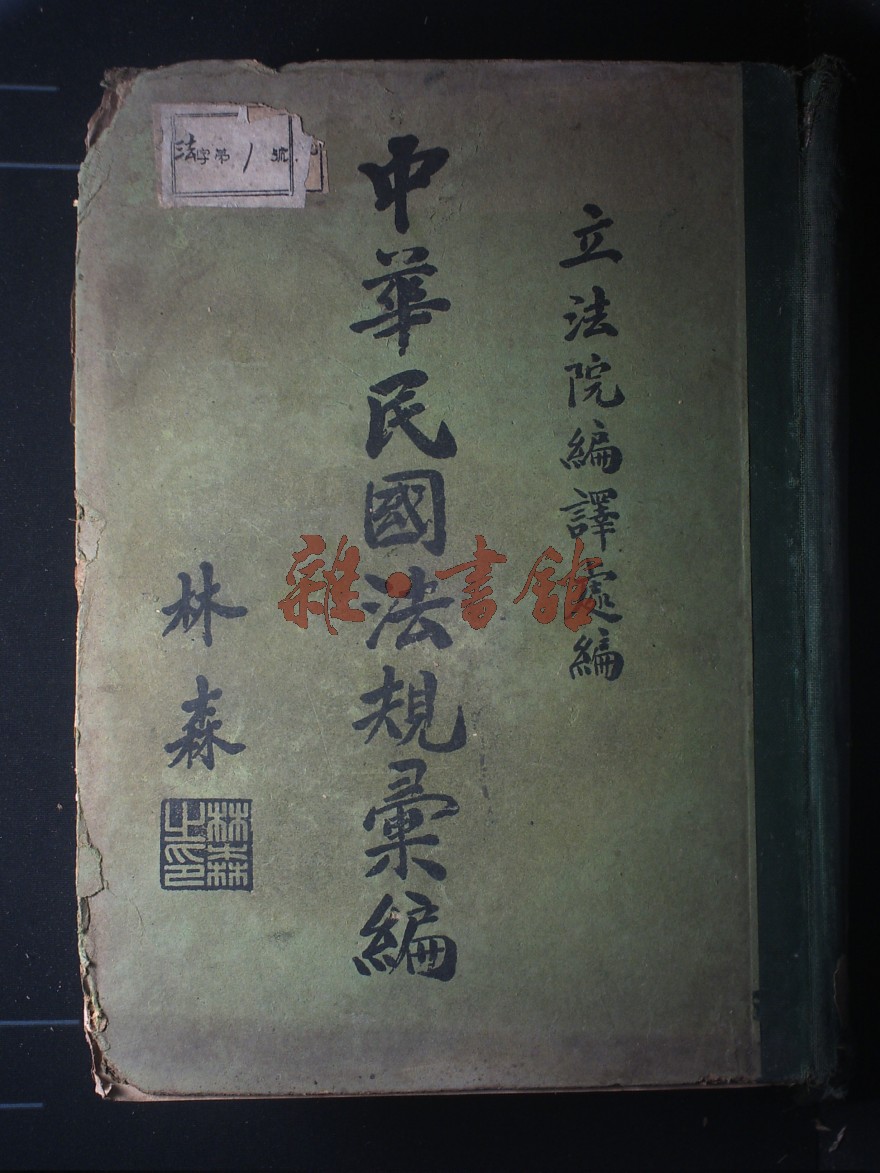 立法院編譯處編
中華民國法規彙編
林森
林森之印
法字第1號
雜·書館